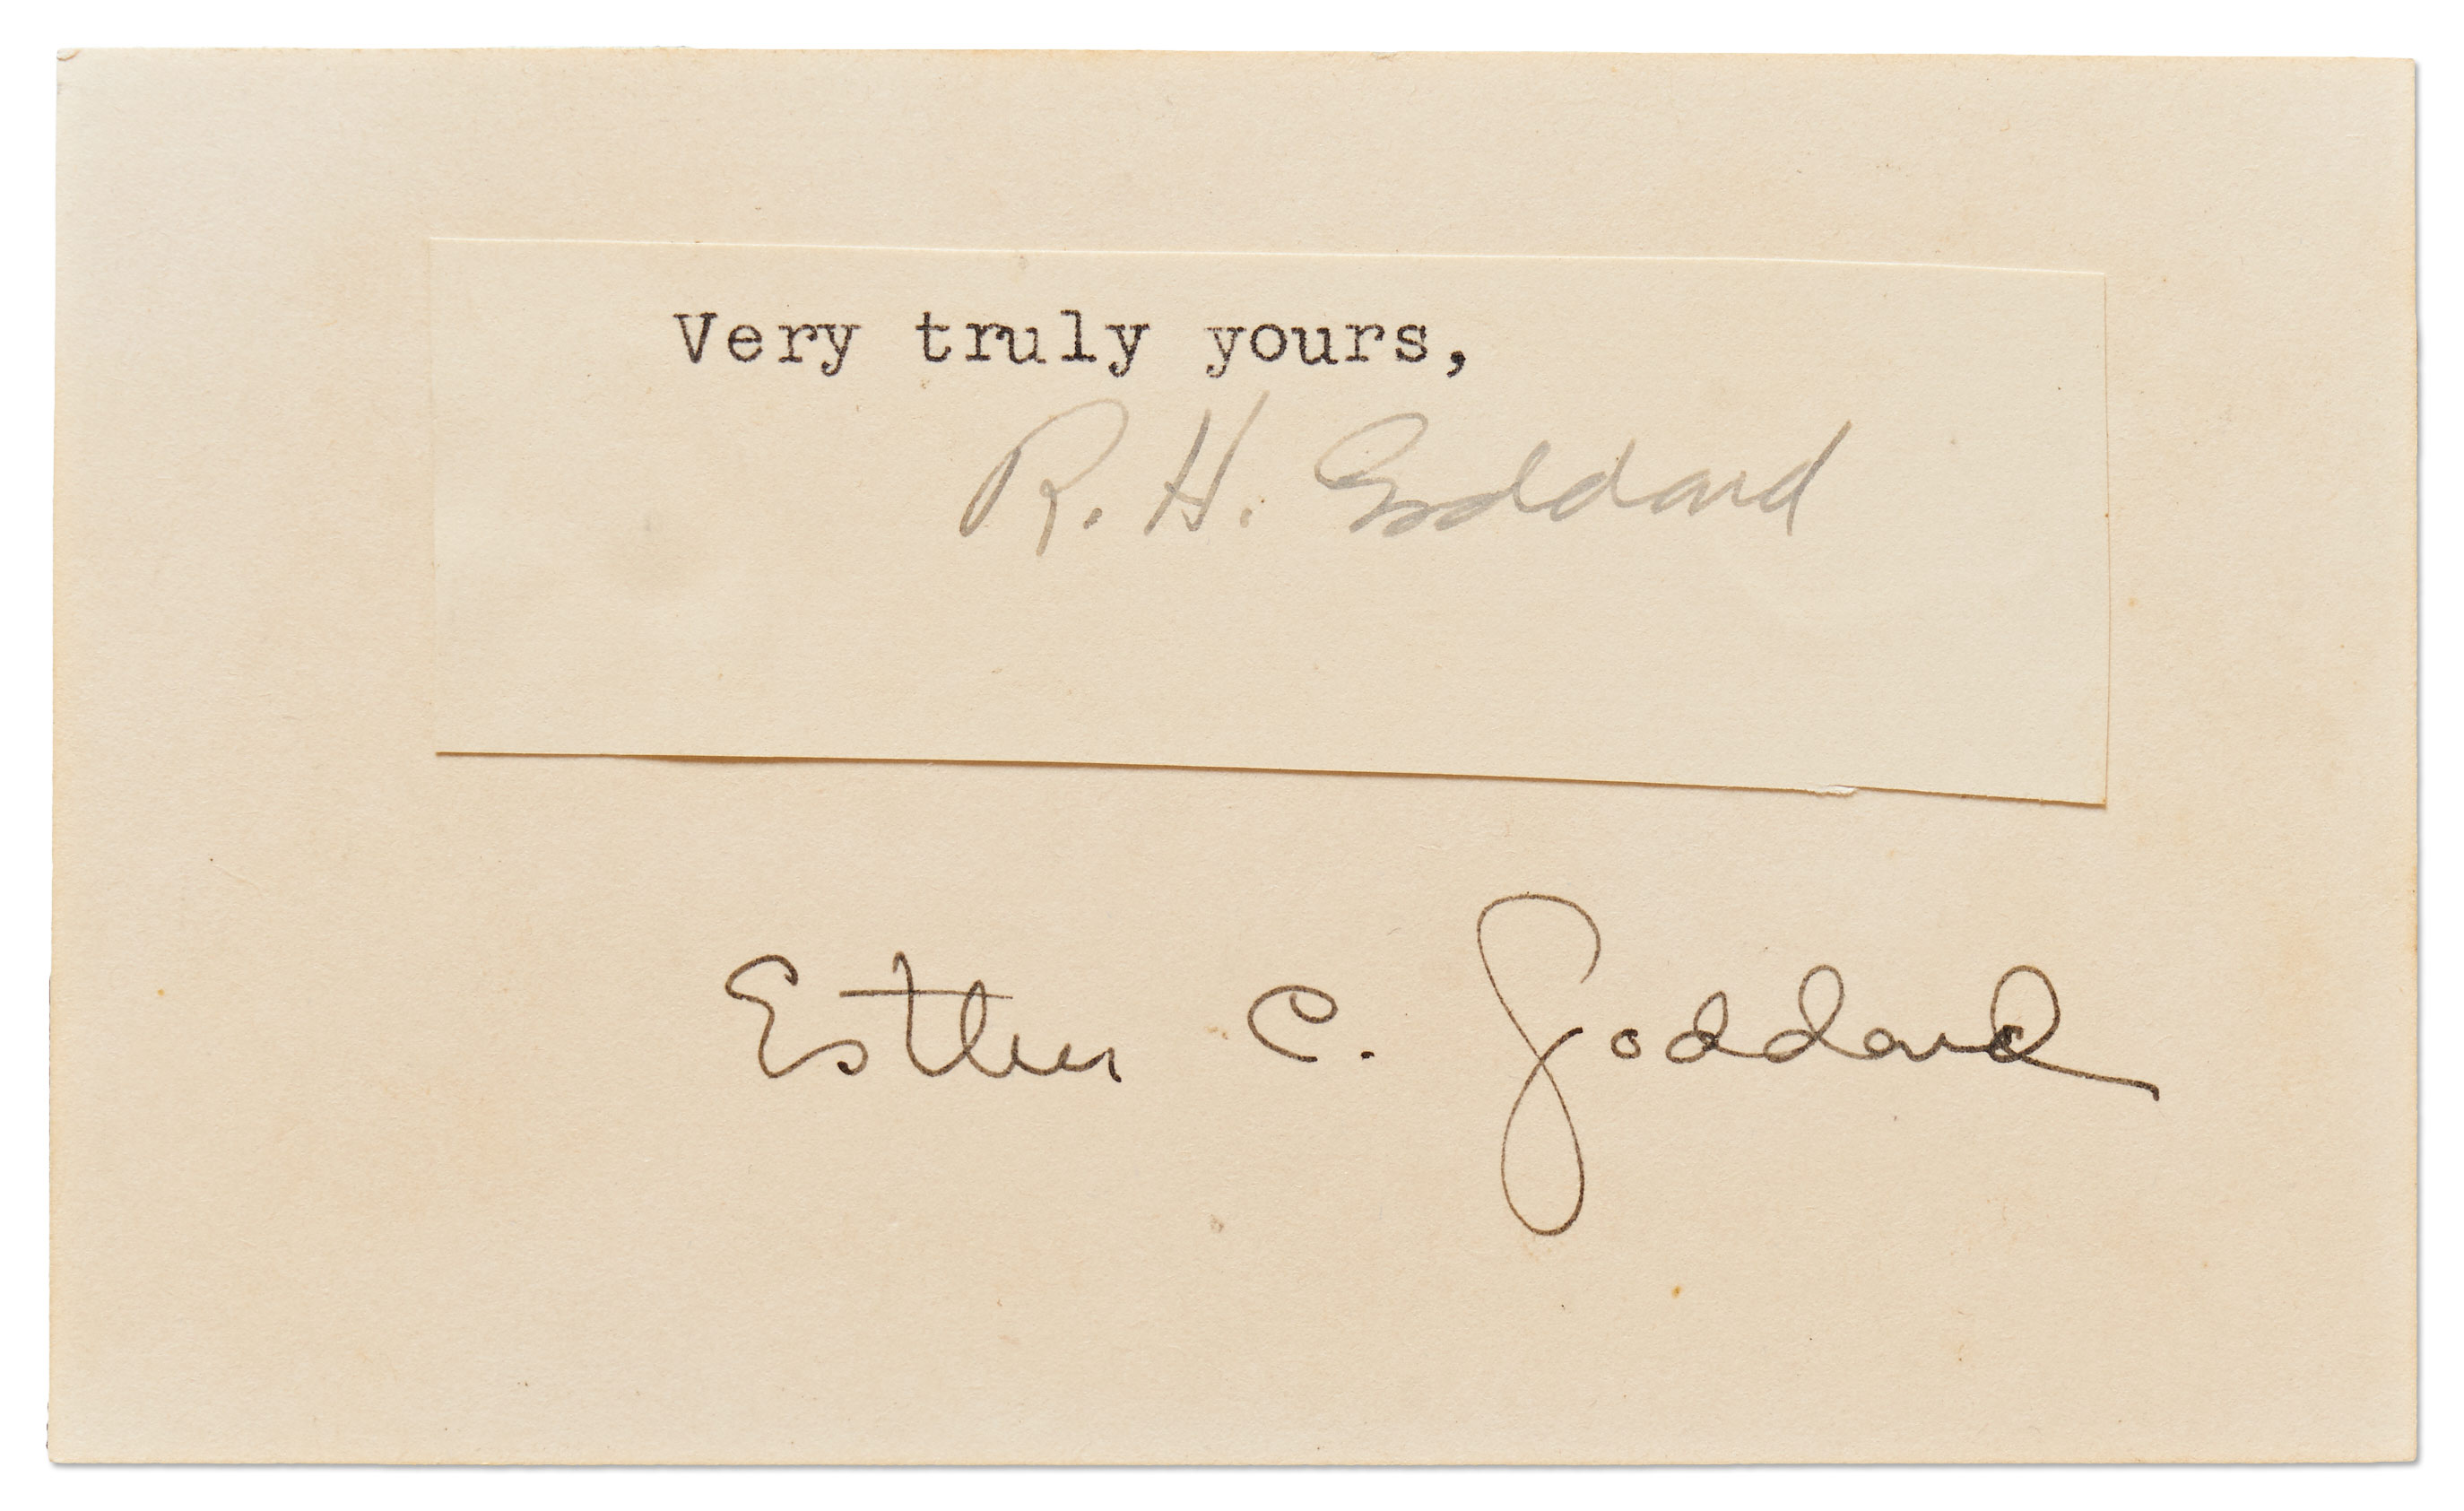 Very truly yours,
R. H. Goddard
Esther C. Goddard